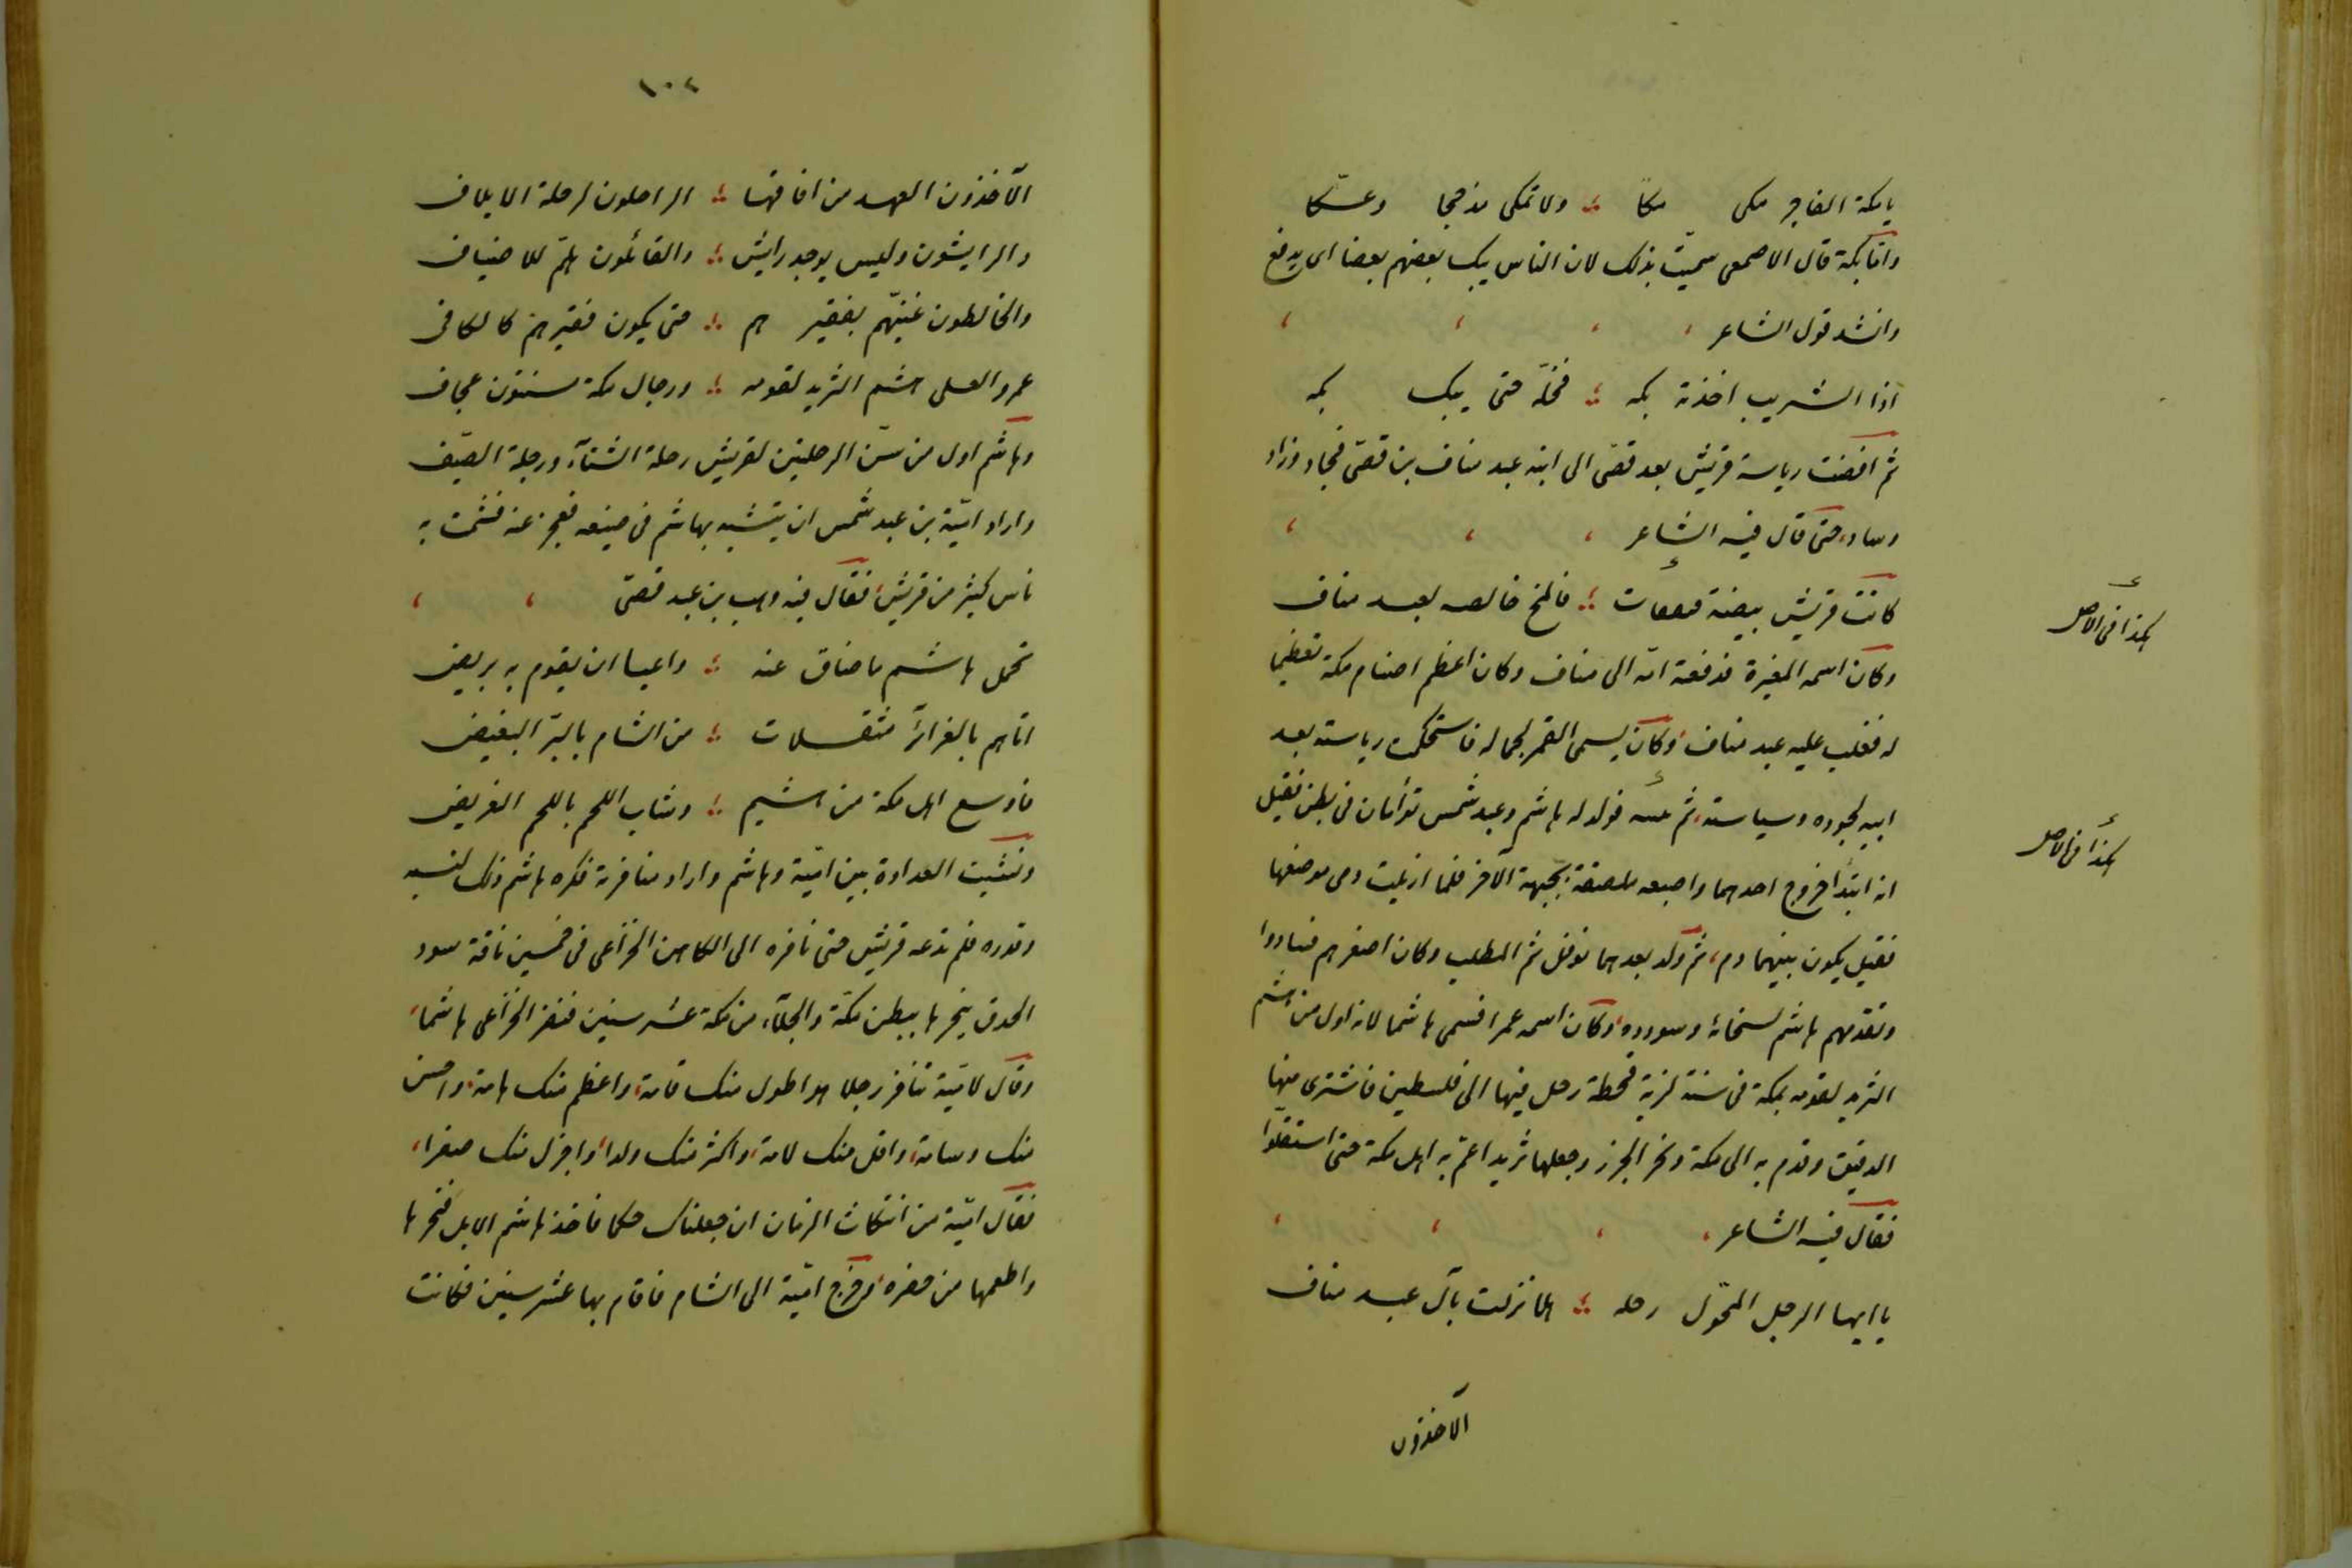 يا مكة الفاجر مكى مكا ؞ ولا تمكى مذحجا وعكا
واما بكة قال الاصمعى سميت بذلك لان الناس يبك بعضهم بعضا اى يدفع
وانشد قول الشاعر
اذا الشريب اخذته بكه ؞ فخله حتى يبك بكه
ثم افضت رياسة قريش بعد قصىّ الى ابنه عبد مناف بن قصىّ فجاد وزاد
وساد، حتى قال فيه الشاعر
كانت قريش بيضة فتفقأت ؞ فالمخ خالصه لعبد مناف
وكان اسمه المغيرة فدفعته امّه الى مناف وكان اعظم اصنام مكة تعظيما
له فغلب عليه عبد مناف، وكان يسمى القمر لجماله فاستحكمت رياسته بعد
ابيه لجوده وسياسته، ثم فولد له هاشم وعبد شمس توأمان فى بطن فقيل
انه ابتدأ خروج احدهما واصبعه ملصقة بجبهة الآخر فلما ازيلت دمى موضعها
فقيل يكون بينهما دم، ثم ولد بعدهما نوفل ثم المطلب وكان اصغرهم فسادوا
وتقدمهم هاشم لسخائه وسودده، وكان اسمه عمرا فسمى هاشما لانه اول من هشم
الثريد لقومه بمكة فى سنة لزبة قحطة رحل فيها الى فلسطين فاشترى منها
الدقيق وقدم به الى مكة ونحر الجزر وجعلها ثريدا عمّ به اهل مكة حتى استقلوا
فقال فيه الشاعر
يا ايها الرجل المحوّل رحله ؞ الا نزلت بآل عبد مناف
الآخذون
كذا فى الاصل
كذا فى الاصل
١٠٢
الآخذون العهد من افاقها ؞ الراحلون لرحلة الايلاف
والرايشون وليس يوجد رايش ؞ والقائلون هلمّ للاضياف
والخالطون غنيّهم بفقيرهم ؞ حتى يكون فقيرهم كالكافى
عمرو العلى هشم الثريد لقومه ؞ ورجال مكة مسنتون عجاف
وهاشم اول من سنّ الرحلتين لقريش رحلة الشتآء ورحلة الصيف
واراد اميّة بن عبد شمس ان يتشبه بهاشم فى صنيعه فعجز عنه فشمت به
ناس كثير من قريش، فقال فيه وهب بن عبد قصىّ
تحمل هاشم ما ضاق عنه ؞ واعيا ان يقوم به بريض
اتاهم بالغرائر متقـلات ؞ من الشام بالبرّ البغيض
فاوسع اهل مكة من هشيم ؞ وشاب اللحم باللحم الغريض
ونشبت العداوة بين اميّة وهاشم واراد منافرته فكره هاشم ذلك لنسبه
وقدره فلم تدعه قريش حتى نافره الى الكاهن الخزاعى فى خمسين ناقة سود
الحدق ينحرها ببطن مكّة والجلآء من مكة عشر سنين فنفر الخزاعى هاشما،
وقال لاميّة تنافر رجلا هو اطول منك قامة، واعظم منك هامة، واحسن
منك وسامة، واقل منك لامة، واكثر منك ولدا، واجزل منك صفدا،
فقال اميّة من انتكاث الزمان ان جعلناك حكما فاخذ هاشم الابل فنحرها
واطعمها من حضره، وخرج اميّة الى الشام فاقام بها عشر سنين فكانت